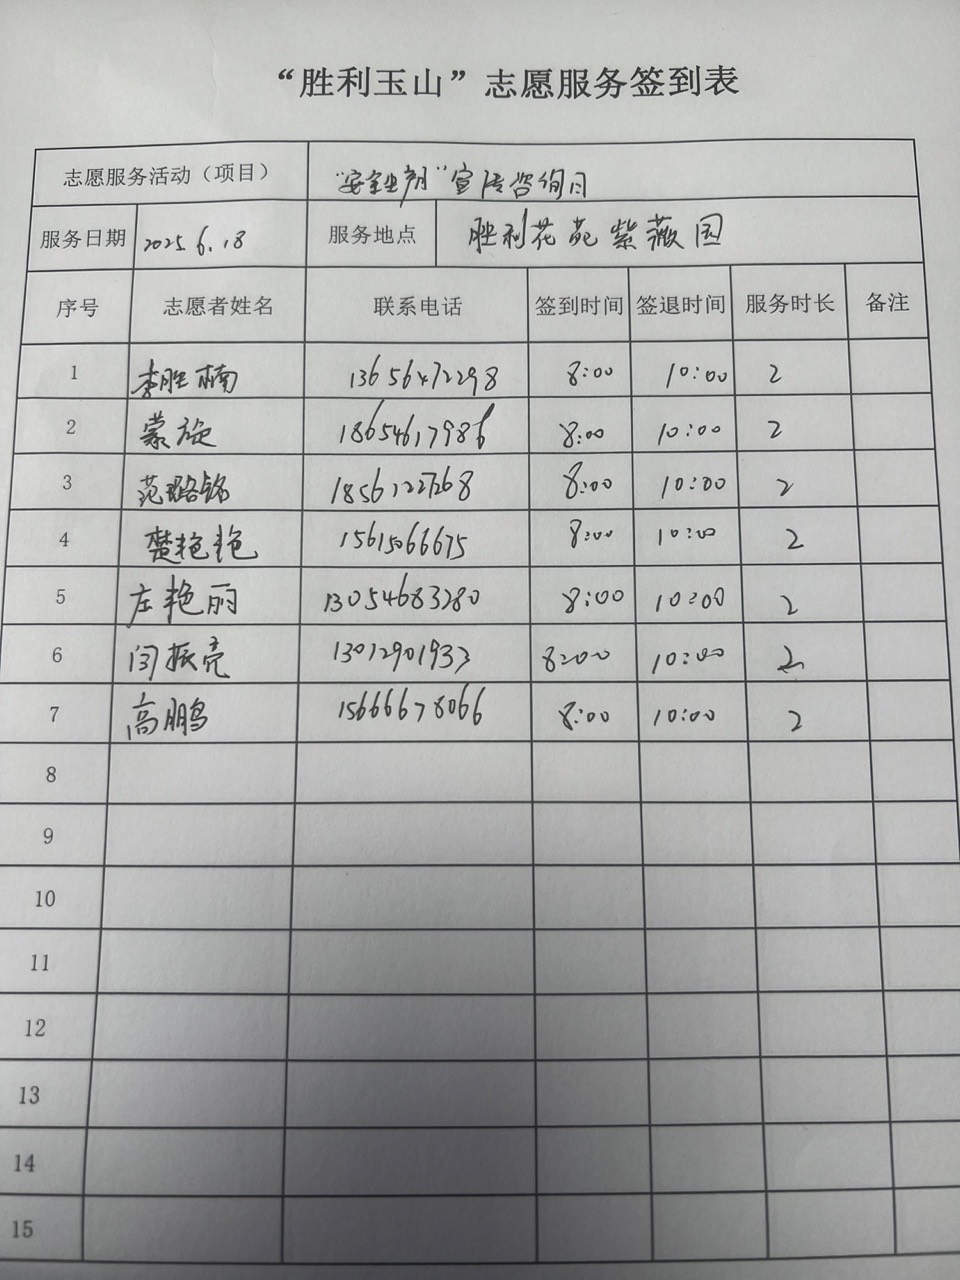 “胜利玉山”志愿服务签到表
志愿服务活动（项目） “安全生产”宣传咨询日
服务日期 2025.6.18 服务地点 胜利花苑紫薇园
序号 志愿者姓名 联系电话 签到时间 签退时间 服务时长 备注
1 李胜楠 13656472298 8:00 10:00 2
2 蒙旋 18654617986 8:00 10:00 2
3 范璐锦 18561227268 8:00 10:00 2
4 楚艳艳 15615066675 8:00 10:00 2
5 庄艳丽 13054683280 8:00 10:00 2
6 闫振亮 13012901933 8:00 10:00 2
7 高鹏 15666678066 8:00 10:00 2
8
9
10
11
12
13
14
15